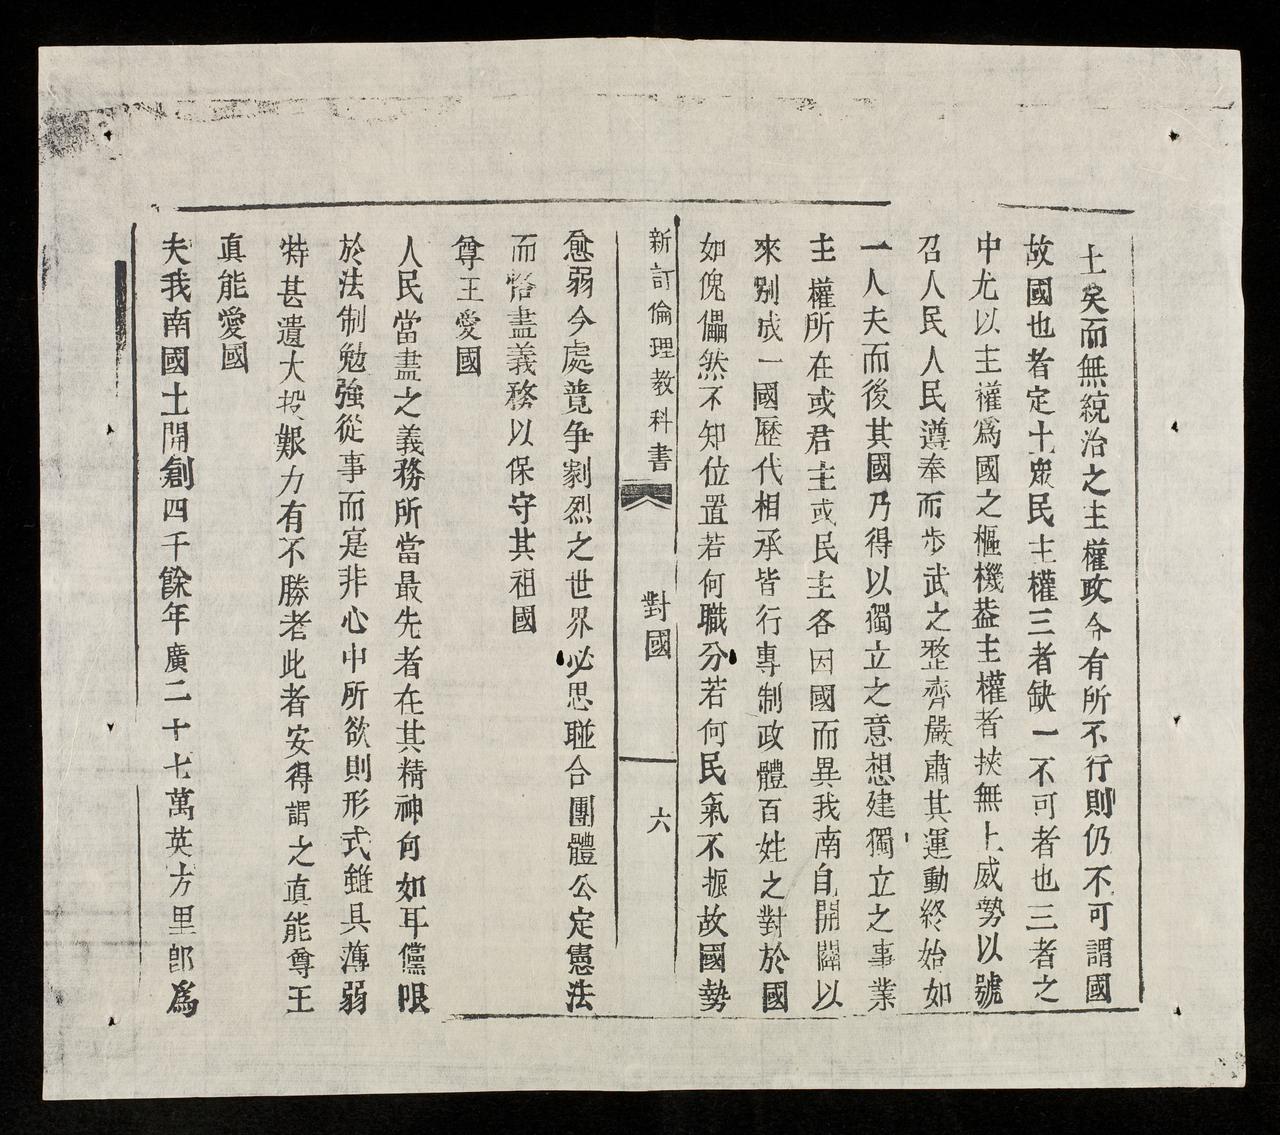 土矣而無統治之主權政令有所不行則仍不可謂國
故國也者定土衆民主權三者缺一不可者也三者之
中尤以主權爲國之樞機葢主權者挾無上威勢以號
召人民人民遵奉而步武之整齊嚴肅其運動終始如
一人夫而後其國乃得以獨立之意想建獨立之事業
主權所在或君主或民主各因國而異我南自開闢以
來別成一國歷代相承皆行專制政體百姓之對於國
如傀儡然不知位置若何職分若何民氣不振故國勢
新訂倫理教科書 對國 六
愈弱今處競争劇烈之世界必思聯合團體公定憲法
而啓盡義務以保守其祖國
尊王愛國
人民當盡之義務所當最先者在其精神何如耳儻限
於法制勉強從事而寔非心中所欲則形式雖具薄弱
特甚遺大投艱力有不勝者此者安得謂之真能尊王
真能愛國
夫我南國土開創四千餘年廣二十七萬英方里郎爲